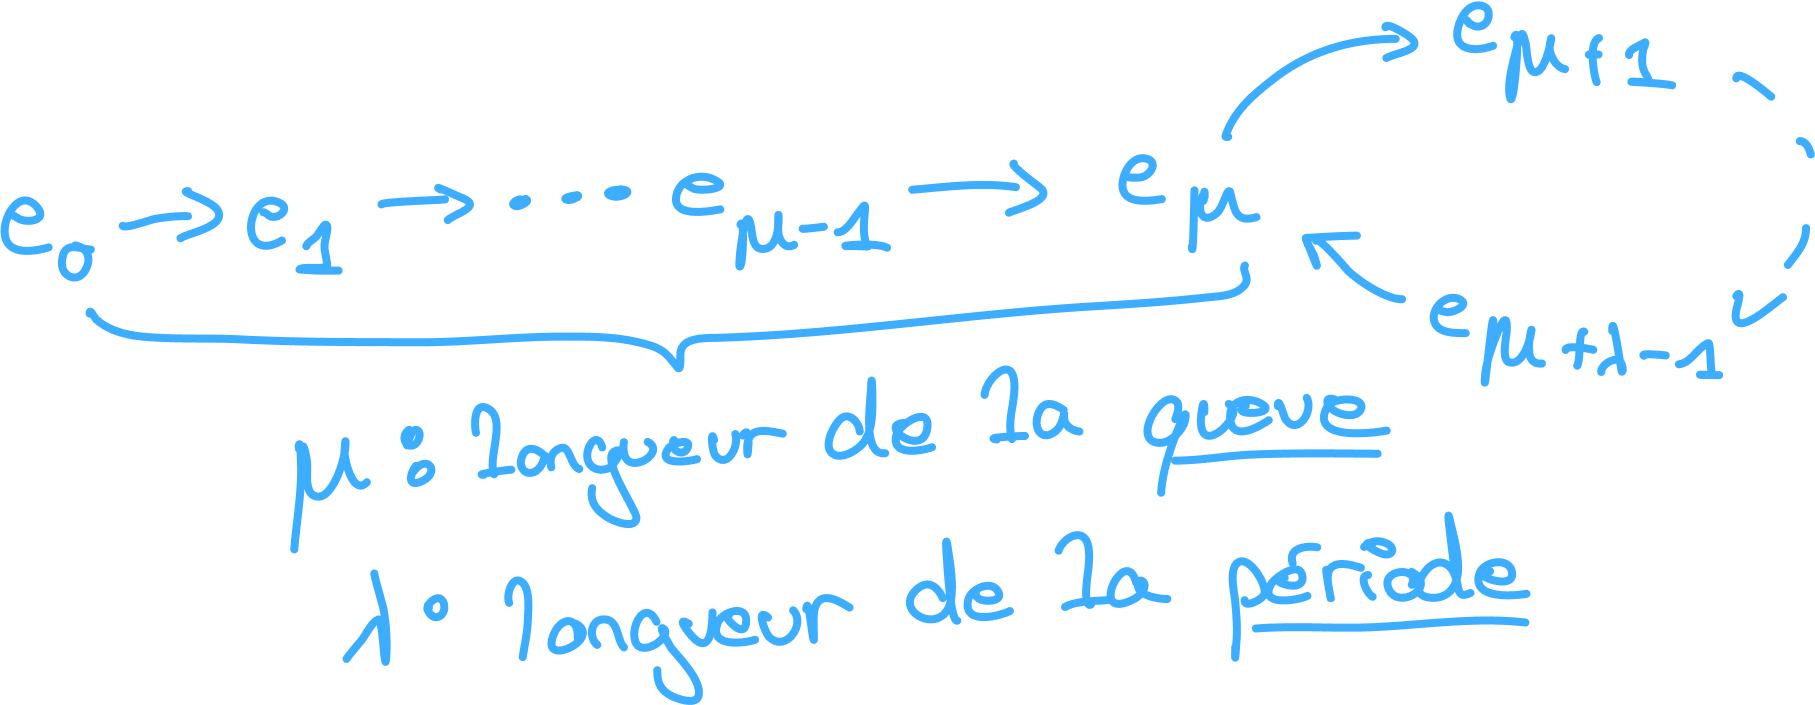 e₀ → e₁ → ··· e_{μ-1} → e_μ → e_{μ+1}
e_{μ+λ-1}
μ : longueur de la queue
λ : longueur de la période